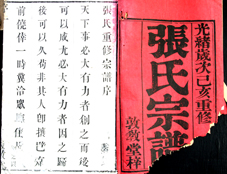 光緒歲次己亥重修
張氏宗譜
敦敘堂梓
張氏重修宗譜序
天下事必大有力者創之而
可以成尤必大有力者因之歸
後可以久苟非其人卽擴已
前僥倖一時冀